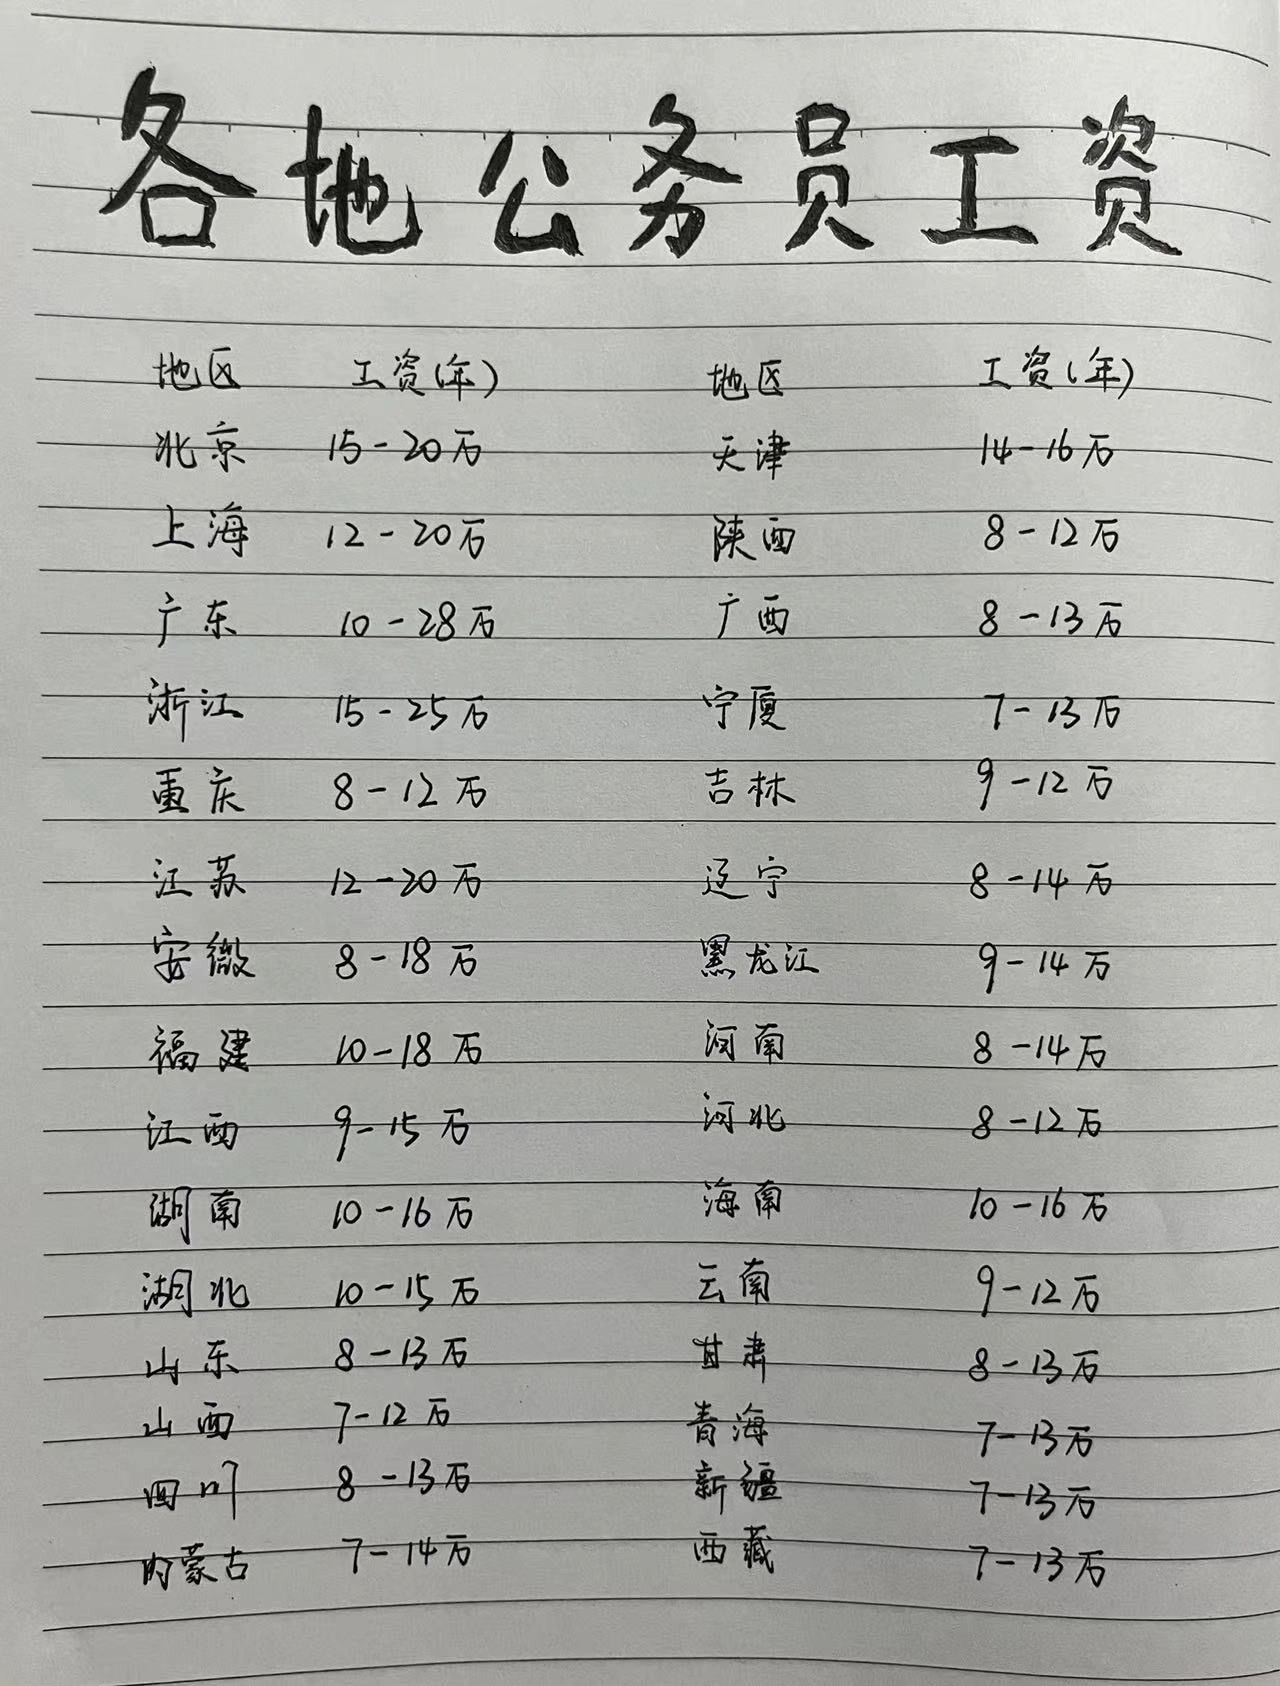 各地公务员工资
地区 工资(年) 地区 工资(年)
北京 15-20万 天津 14-16万
上海 12-20万 陕西 8-12万
广东 10-28万 广西 8-13万
浙江 15-25万 宁厦 7-13万
重庆 8-12万 吉林 9-12万
江苏 12-20万 辽宁 8-14万
安徽 8-18万 黑龙江 9-14万
福建 10-18万 河南 8-14万
江西 9-15万 河北 8-12万
湖南 10-16万 海南 10-16万
湖北 10-15万 云南 9-12万
山东 8-13万 甘肃 8-13万
山西 7-12万 青海 7-13万
四川 8-13万 新疆 7-13万
内蒙古 7-14万 西藏 7-13万